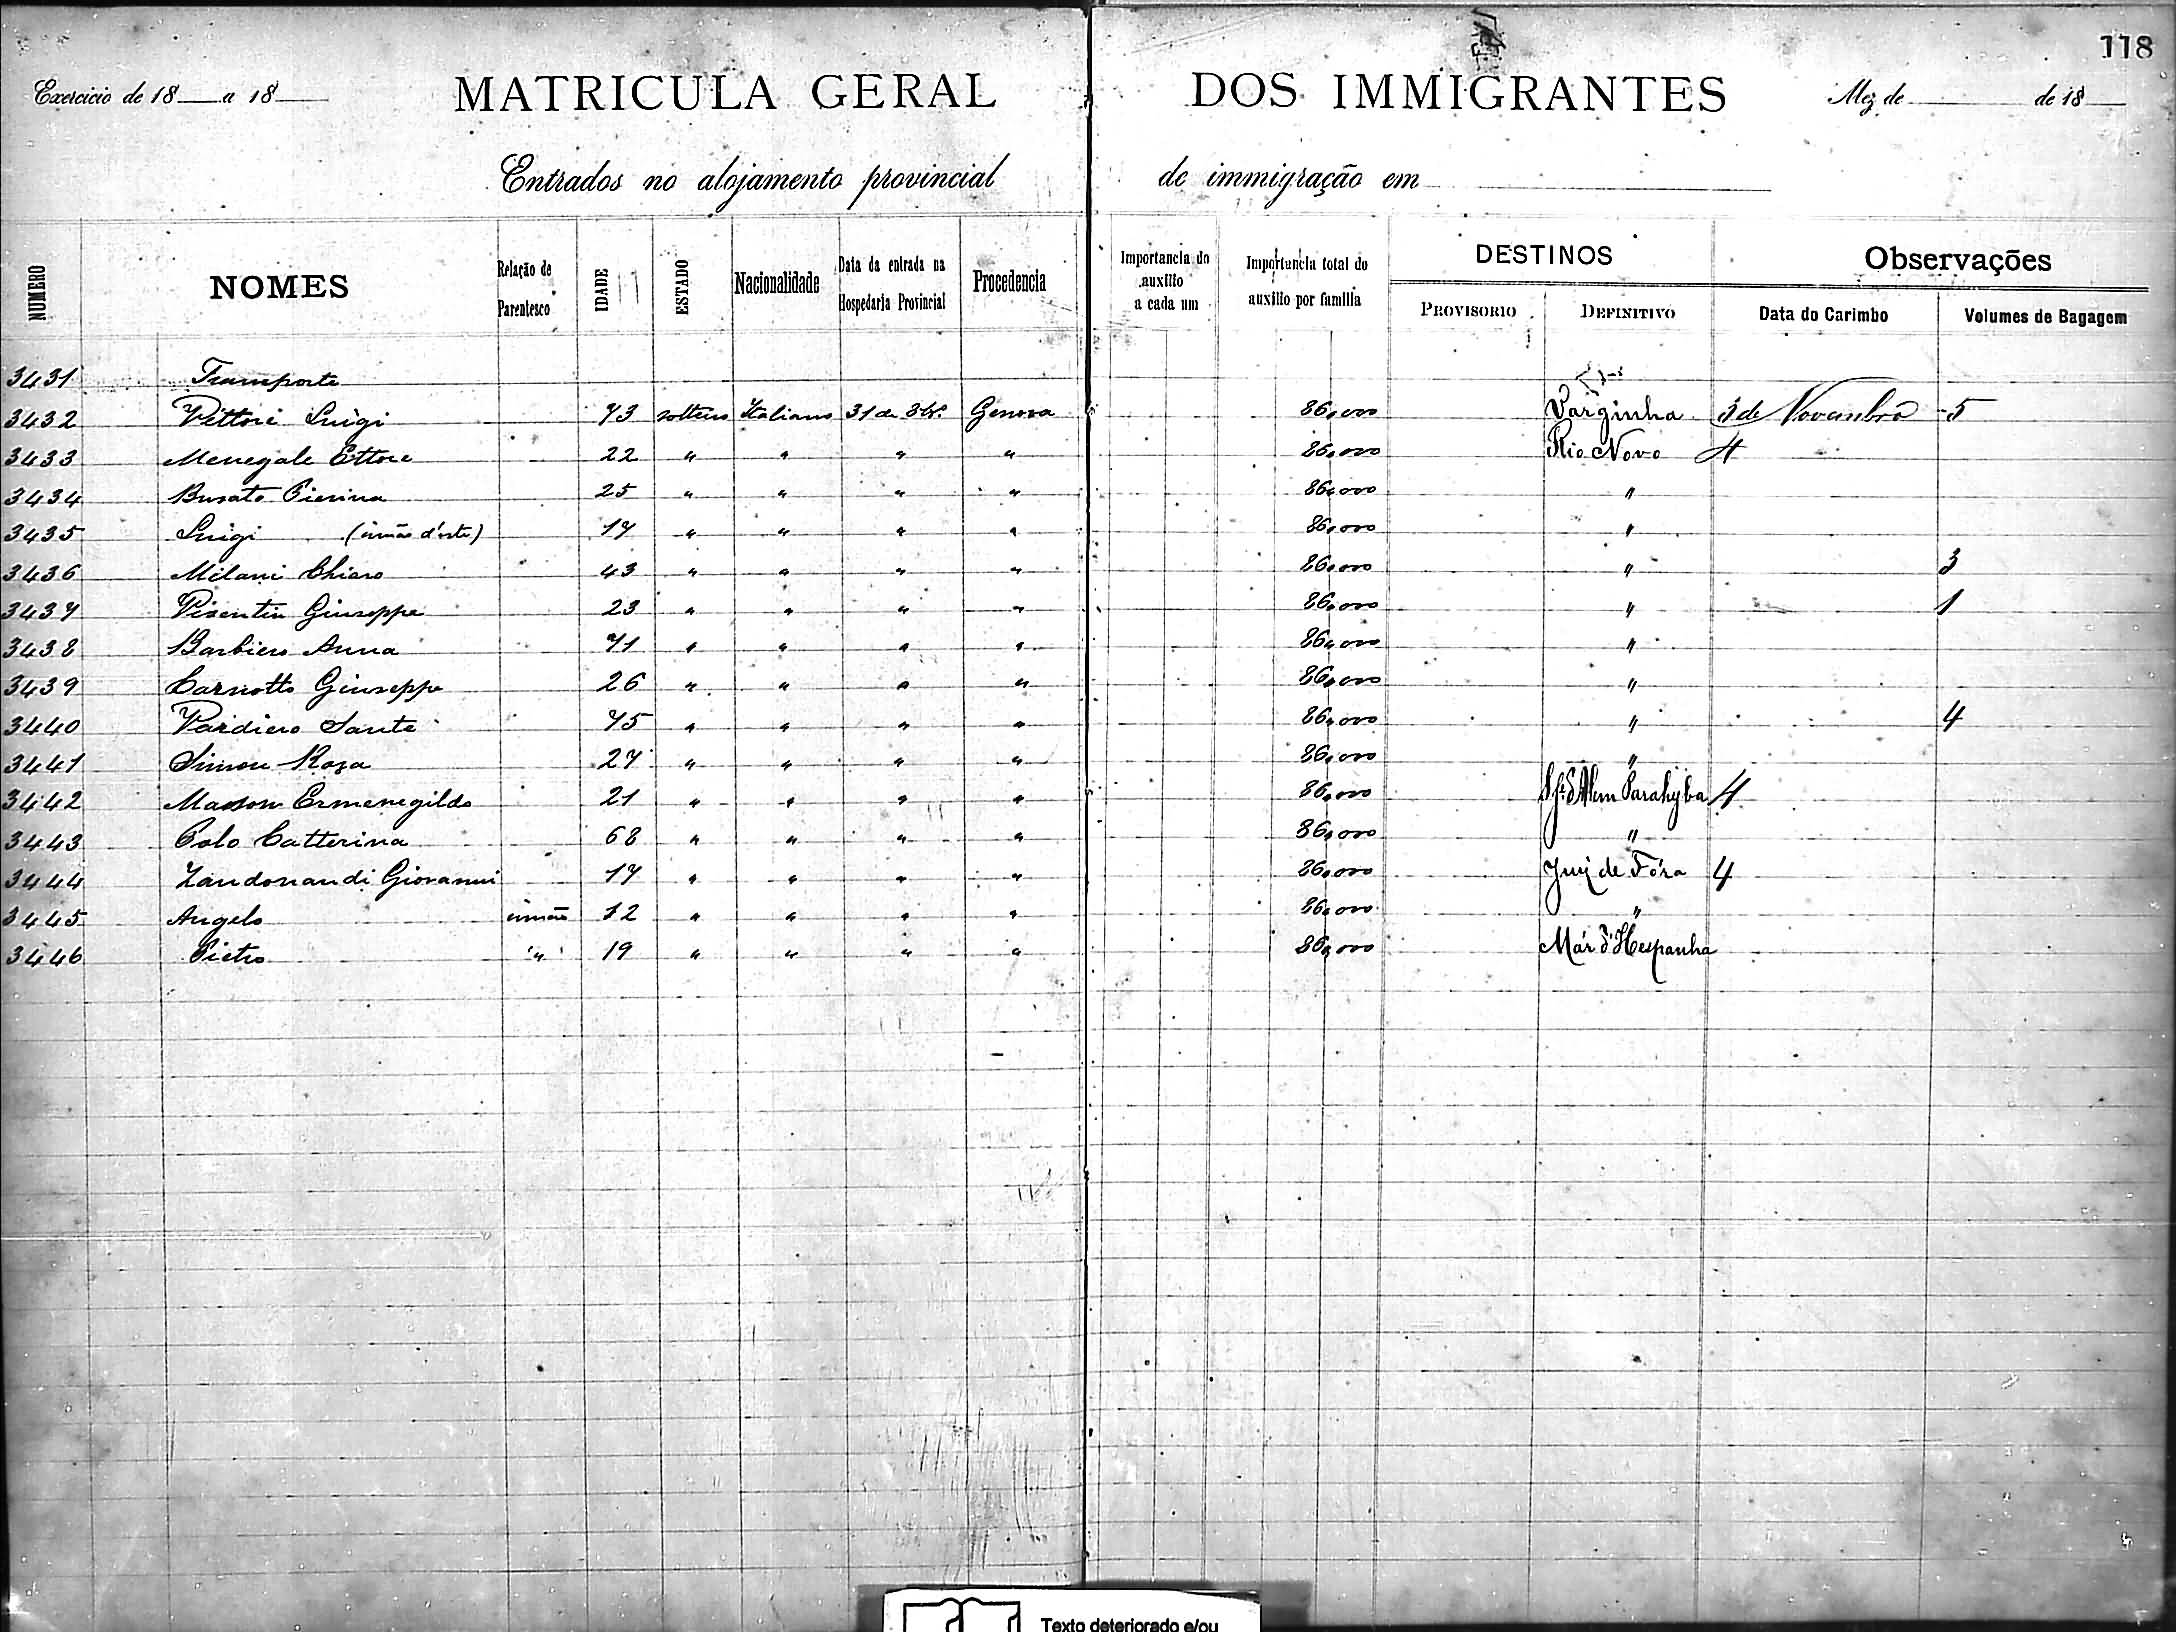 118
Exercicio de 18 a 18 MATRICULA GERAL DOS IMMIGRANTES Mez de de 18
Entrados no alojamento provincial de immigração em
NUMERO NOMES Relação de Parentesco IDADE ESTADO Nacionalidade Data da entrada na Hospedaria Provincial Procedencia Importancia do auxilio a cada um Importancia total do auxilio por familia DESTINOS PROVISORIO DEFINITIVO Observações Data do Carimbo Volumes de Bagagem
3431 Transporte
3432 Vittori Luigi 73 solteiro Italiano 31 de 8bro. Genova 86,000 Varginha 3 de Novembro 5
3433 Menegale Ettore 22 " " " " 86,000 Rio Novo 4
3434 Busato Pierina 25 " " " " 86,000 "
3435 Luigi (irmão d'este) 17 " " " " 86,000 "
3436 Milani Chiaro 43 " " " " 86,000 " 3
3437 Visentin Giuseppe 23 " " " " 86,000 " 1
3438 Barbiero Anna 71 " " " " 86,000 "
3439 Carnotto Giuseppe 26 " " " " 86,000 "
3440 Vardiero Sante 75 " " " " 86,000 " 4
3441 Simon Roza 27 " " " " 86,000 "
3442 Masson Ermenegildo 21 " " " " 86,000 S. J. d'Alem Parahyba 4
3443 Polo Catterina 68 " " " " 86,000 "
3444 Zandonandi Giovanni 17 " " " " 86,000 Juiz de Fóra 4
3445 Angelo irmão 12 " " " " 86,000 "
3446 Pietro " 19 " " " " 86,000 Mar d'Hespanha
Texto deteriorado e/ou